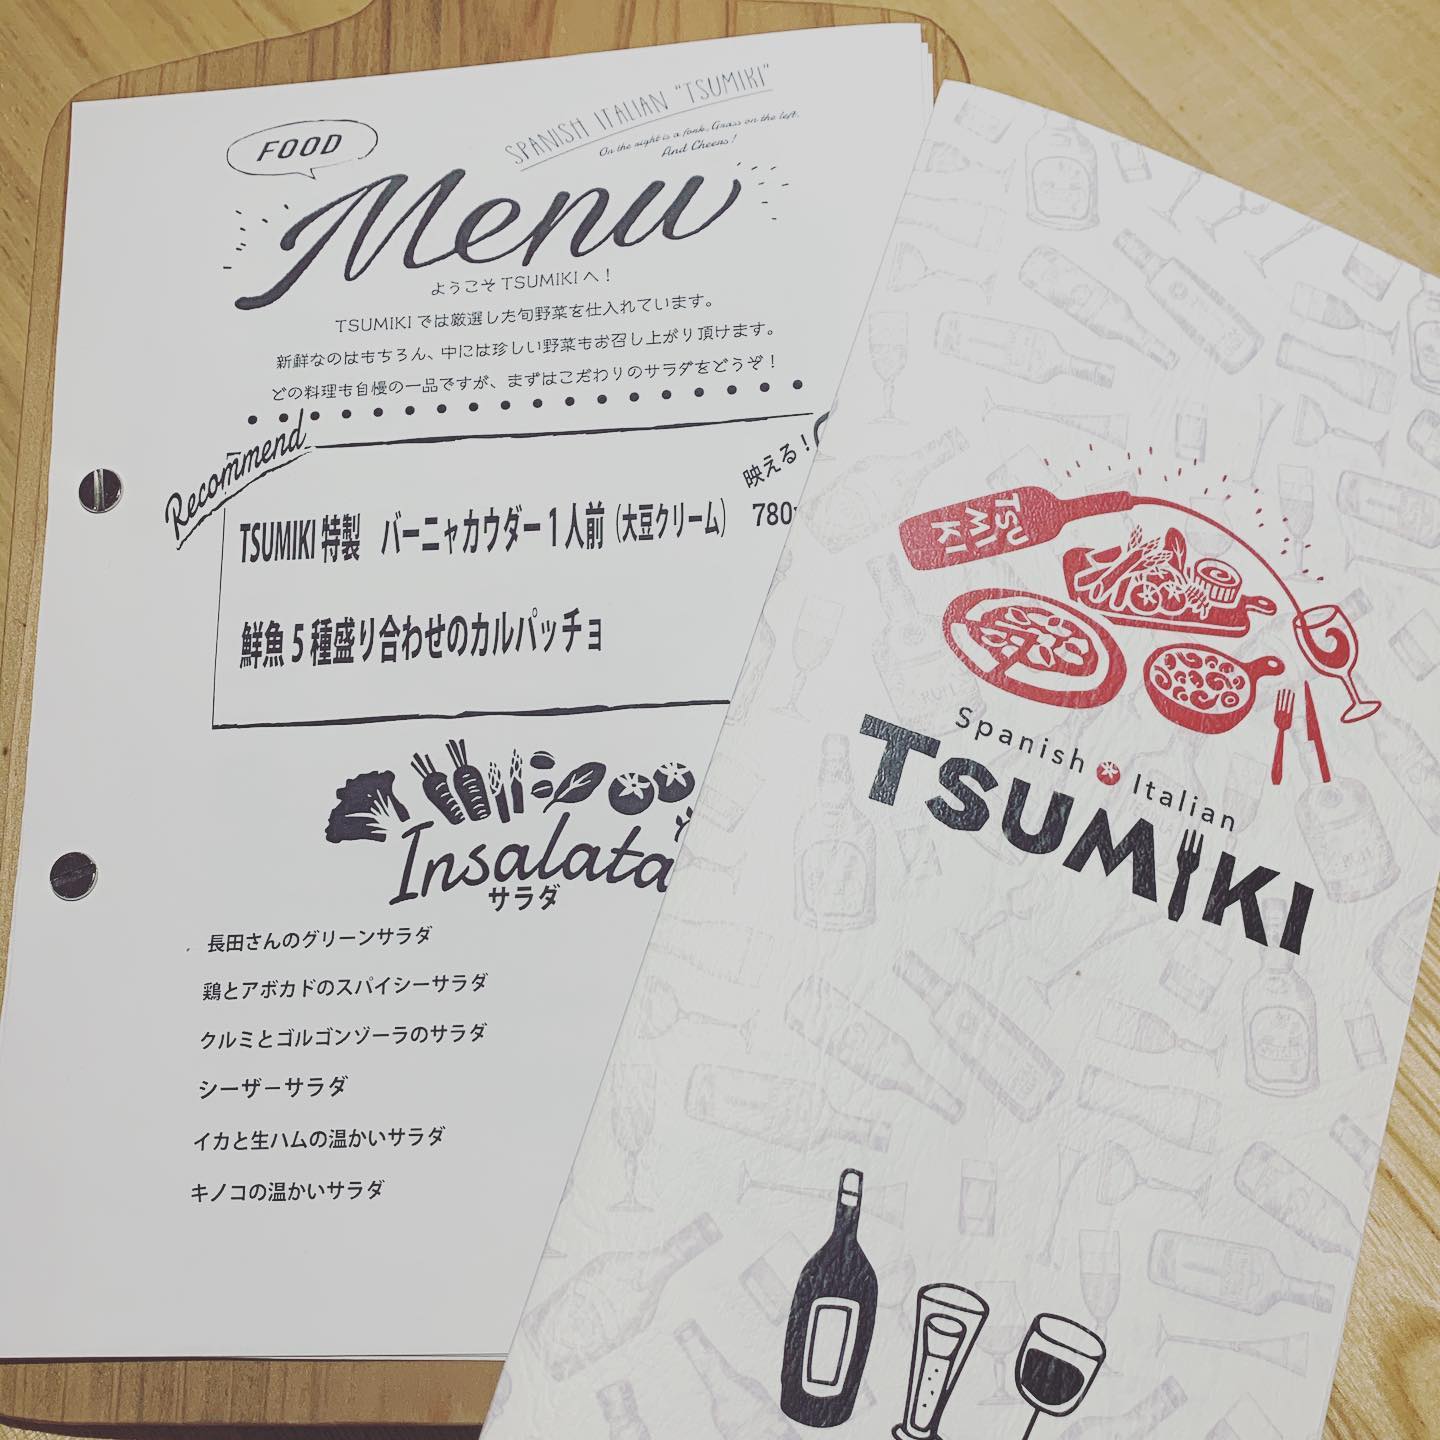 FOOD
SPANISH ITALIAN "TSUMIKI"
On the right is a fork, Grass on the left.
And Cheers!
Menu
ようこそTSUMIKIへ！
TSUMIKIでは厳選した旬野菜を仕入れています。
新鮮なのはもちろん、中には珍しい野菜もお召し上がり頂けます。
どの料理も自慢の一品ですが、まずはこだわりのサラダをどうぞ！
Recommend
映える！
TSUMIKI特製　バーニャカウダー1人前（大豆クリーム）　780
鮮魚5種盛り合わせのカルパッチョ
Insalata
サラダ
長田さんのグリーンサラダ
鶏とアボカドのスパイシーサラダ
クルミとゴルゴンゾーラのサラダ
シーザーサラダ
イカと生ハムの温かいサラダ
キノコの温かいサラダ
TSU
MI
KI
Spanish Italian
TSUMIKI